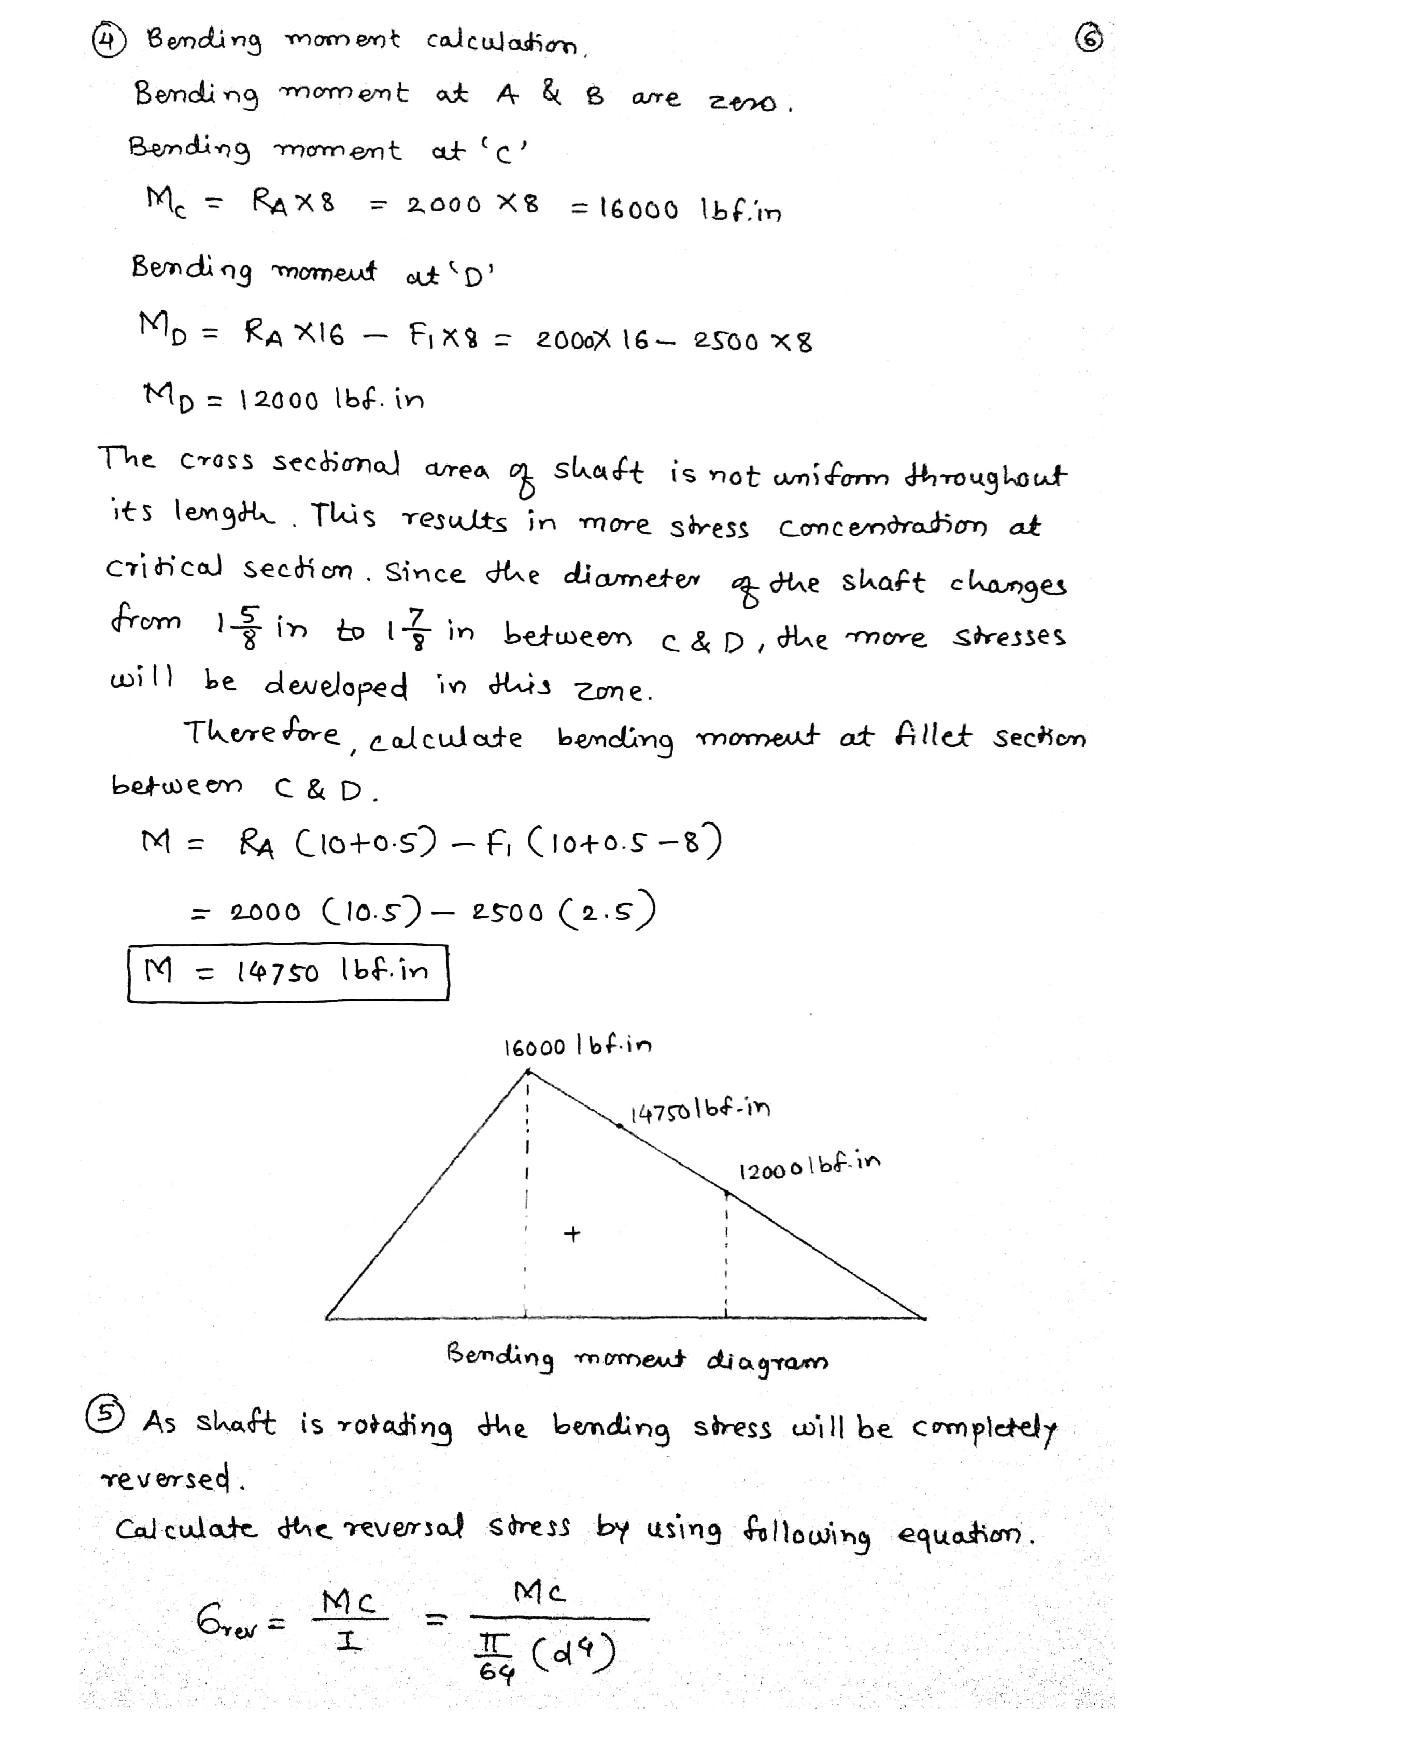 ④ Bending moment calculation. ⑥
Bending moment at A & B are zero.
Bending moment at 'C'
Mc = RA×8 = 2000 ×8 = 16000 lbf.in
Bending moment at 'D'
MD = RA ×16 – F1×8 = 2000× 16 – 2500 ×8
MD = 12000 lbf.in
The cross sectional area of shaft is not uniform throughout
its length. This results in more stress concentration at
critical section. Since the diameter of the shaft changes
from 1 5/8 in to 1 7/8 in between C & D, the more stresses
will be developed in this zone.
Therefore, calculate bending moment at fillet section
between C & D.
M = RA (10+0.5) – F1 (10+0.5–8)
= 2000 (10.5) – 2500 (2.5)
M = 14750 lbf.in
16000 lbf.in
14750 lbf-in
12000 lbf.in
+
Bending moment diagram
⑤ As shaft is rotating the bending stress will be completely
reversed.
Calculate the reversal stress by using following equation.
σrev = MC/I = MC / (π/64 (d4))